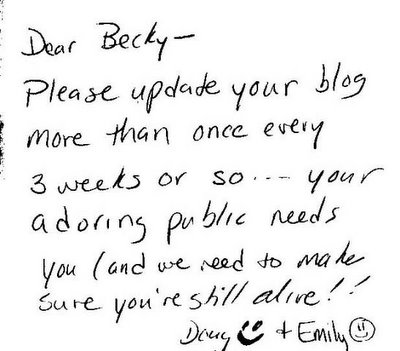 Dear Becky—
Please update your blog
more than once every
3 weeks or so... your
adoring public needs
you (and we need to make
sure you're still alive!!
Doug + Emily